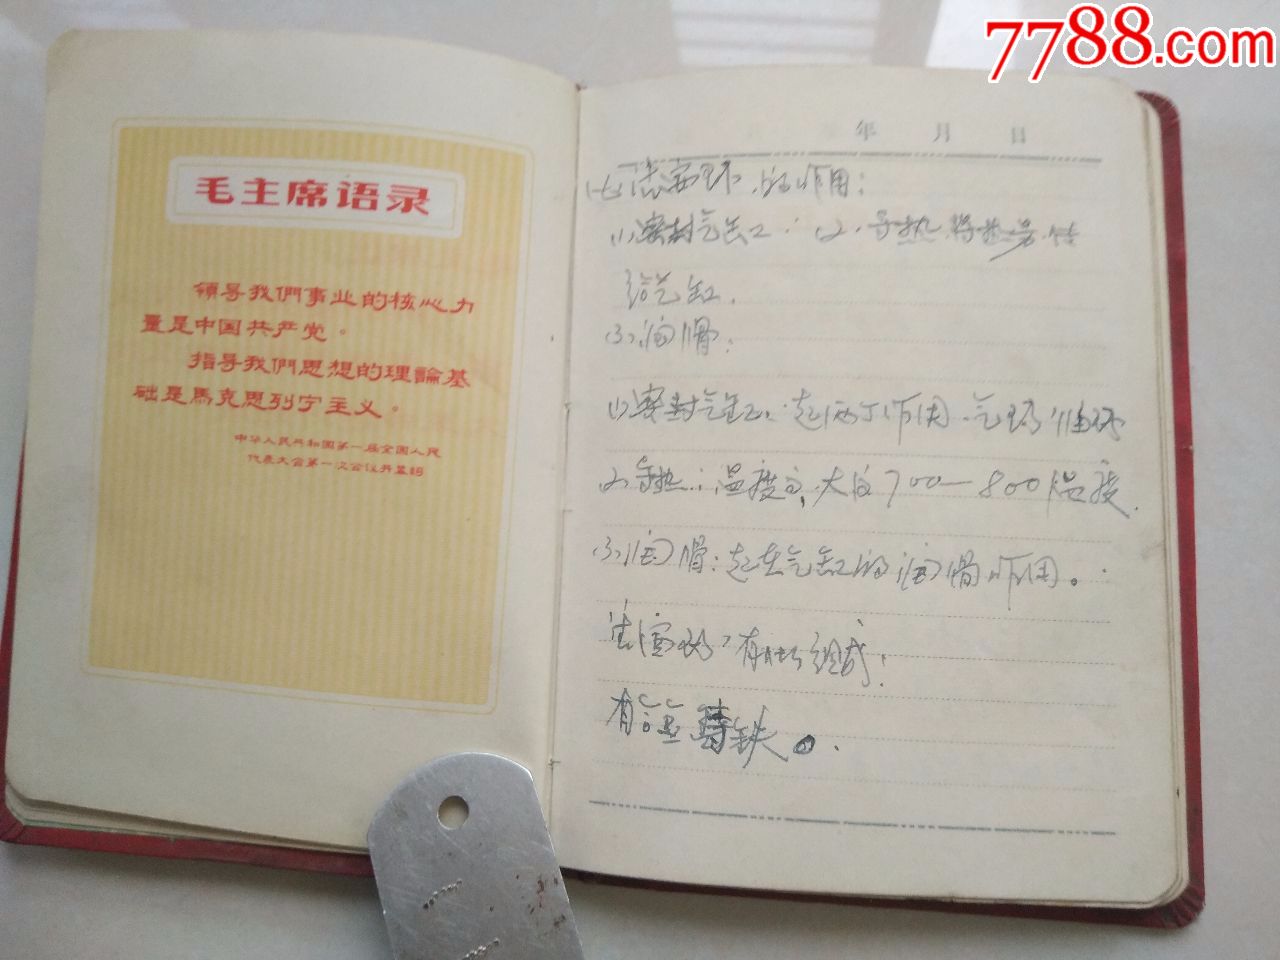 7788.com
毛主席语录
領导我們事业的核心力
量是中国共产党。
指导我們思想的理論基
础是馬克思列宁主义。
中华人民共和国第一届全国人民
代表大会第一次会议开幕詞
年 月 日
活塞环的作用:
(1)密封气缸: (2)导热 将热
给气缸.
(3)润滑:
(1)密封气缸:起两个作用.气环 油环
(2)导热:温度高,大约700—800温度.
(3)润滑:起在气缸的润滑作用。
活塞环 有 组成:
有 铸铁。